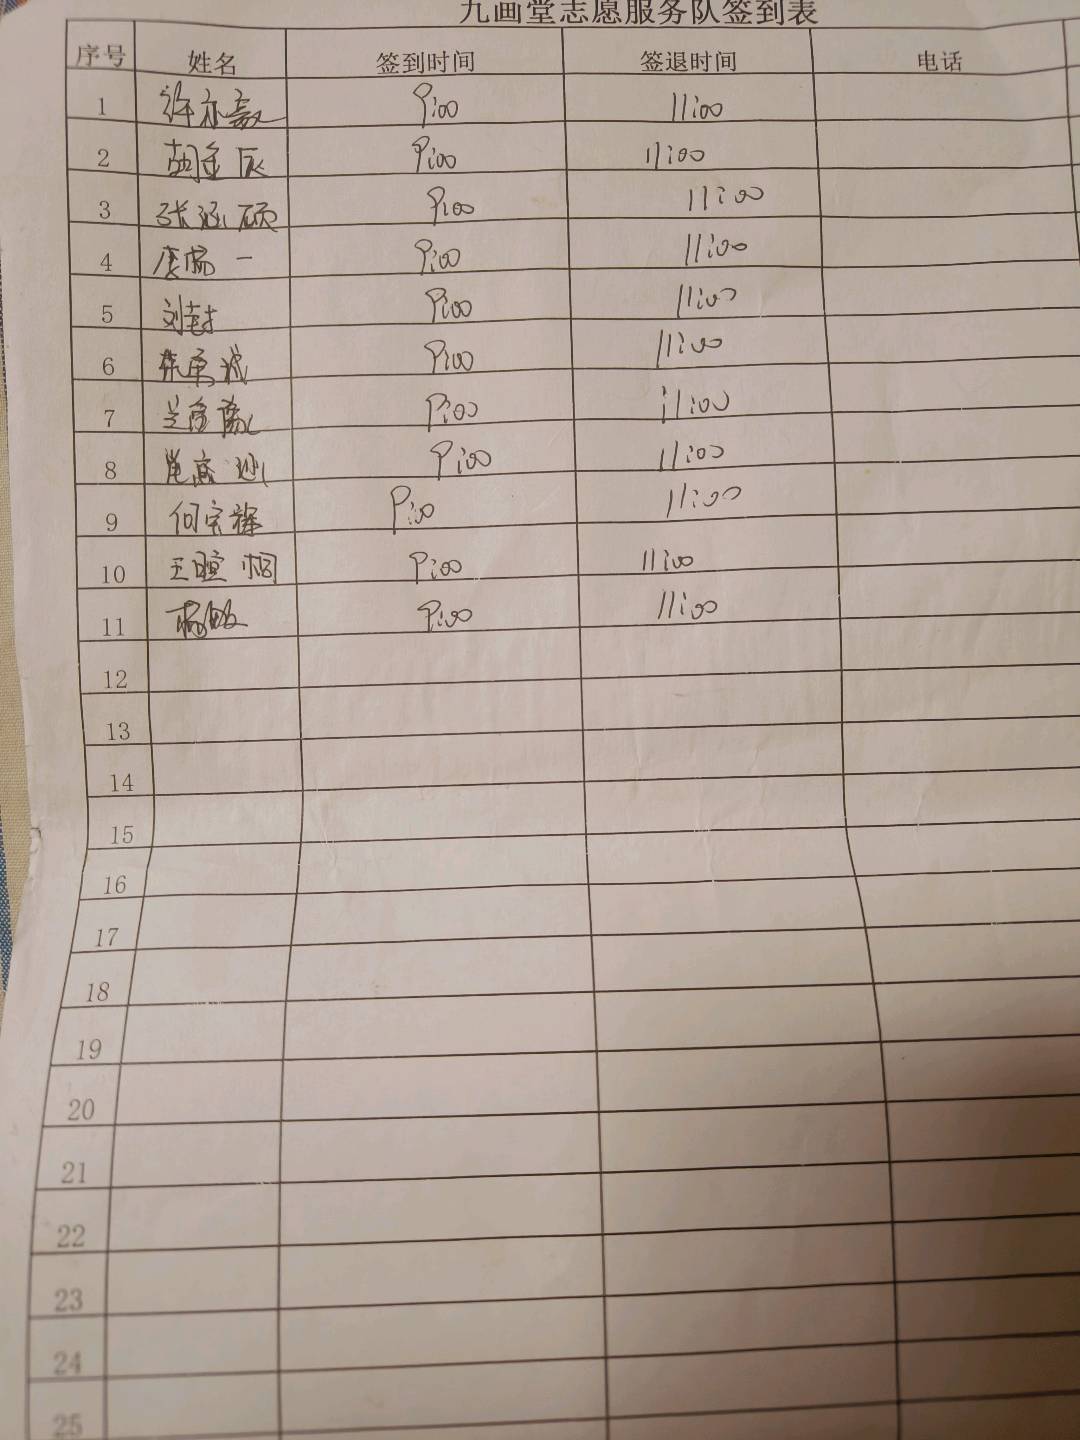 九画堂志愿服务队签到表
序号 姓名 签到时间 签退时间 电话
1 许亦豪 9:00 11:00
2 胡金辰 9:00 11:00
3 张涵硕 9:00 11:00
4 唐杨一 9:00 11:00
5 刘 9:00 11:00
6 9:00 11:00
7 9:00 11:00
8 9:00 11:00
9 何宗辉 9:00 11:00
10 王暄桐 9:00 11:00
11 杨 9:00 11:00
12
13
14
15
16
17
18
19
20
21
22
23
24
25